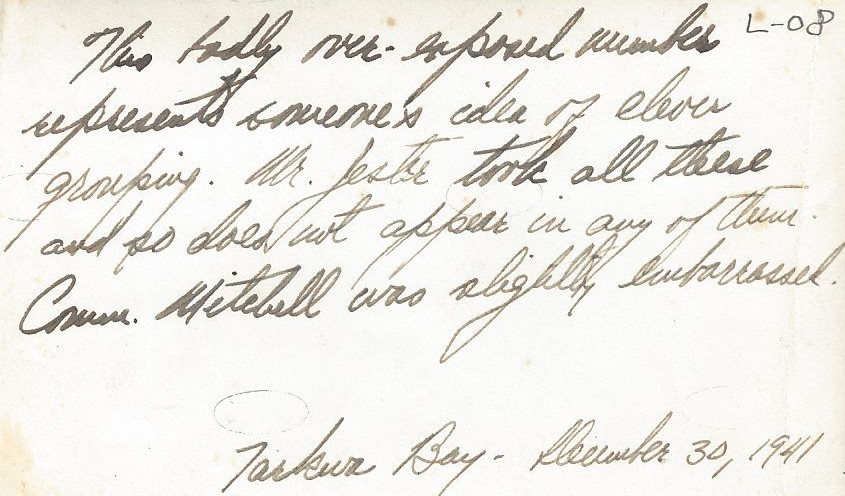 L-08
This badly over-exposed number
represents someone's idea of clever
grouping. Mr. Jester took all these
and so does not appear in any of them.
Comm. Mitchell was slightly embarrassed.
Tarkwa Bay - December 30, 1941